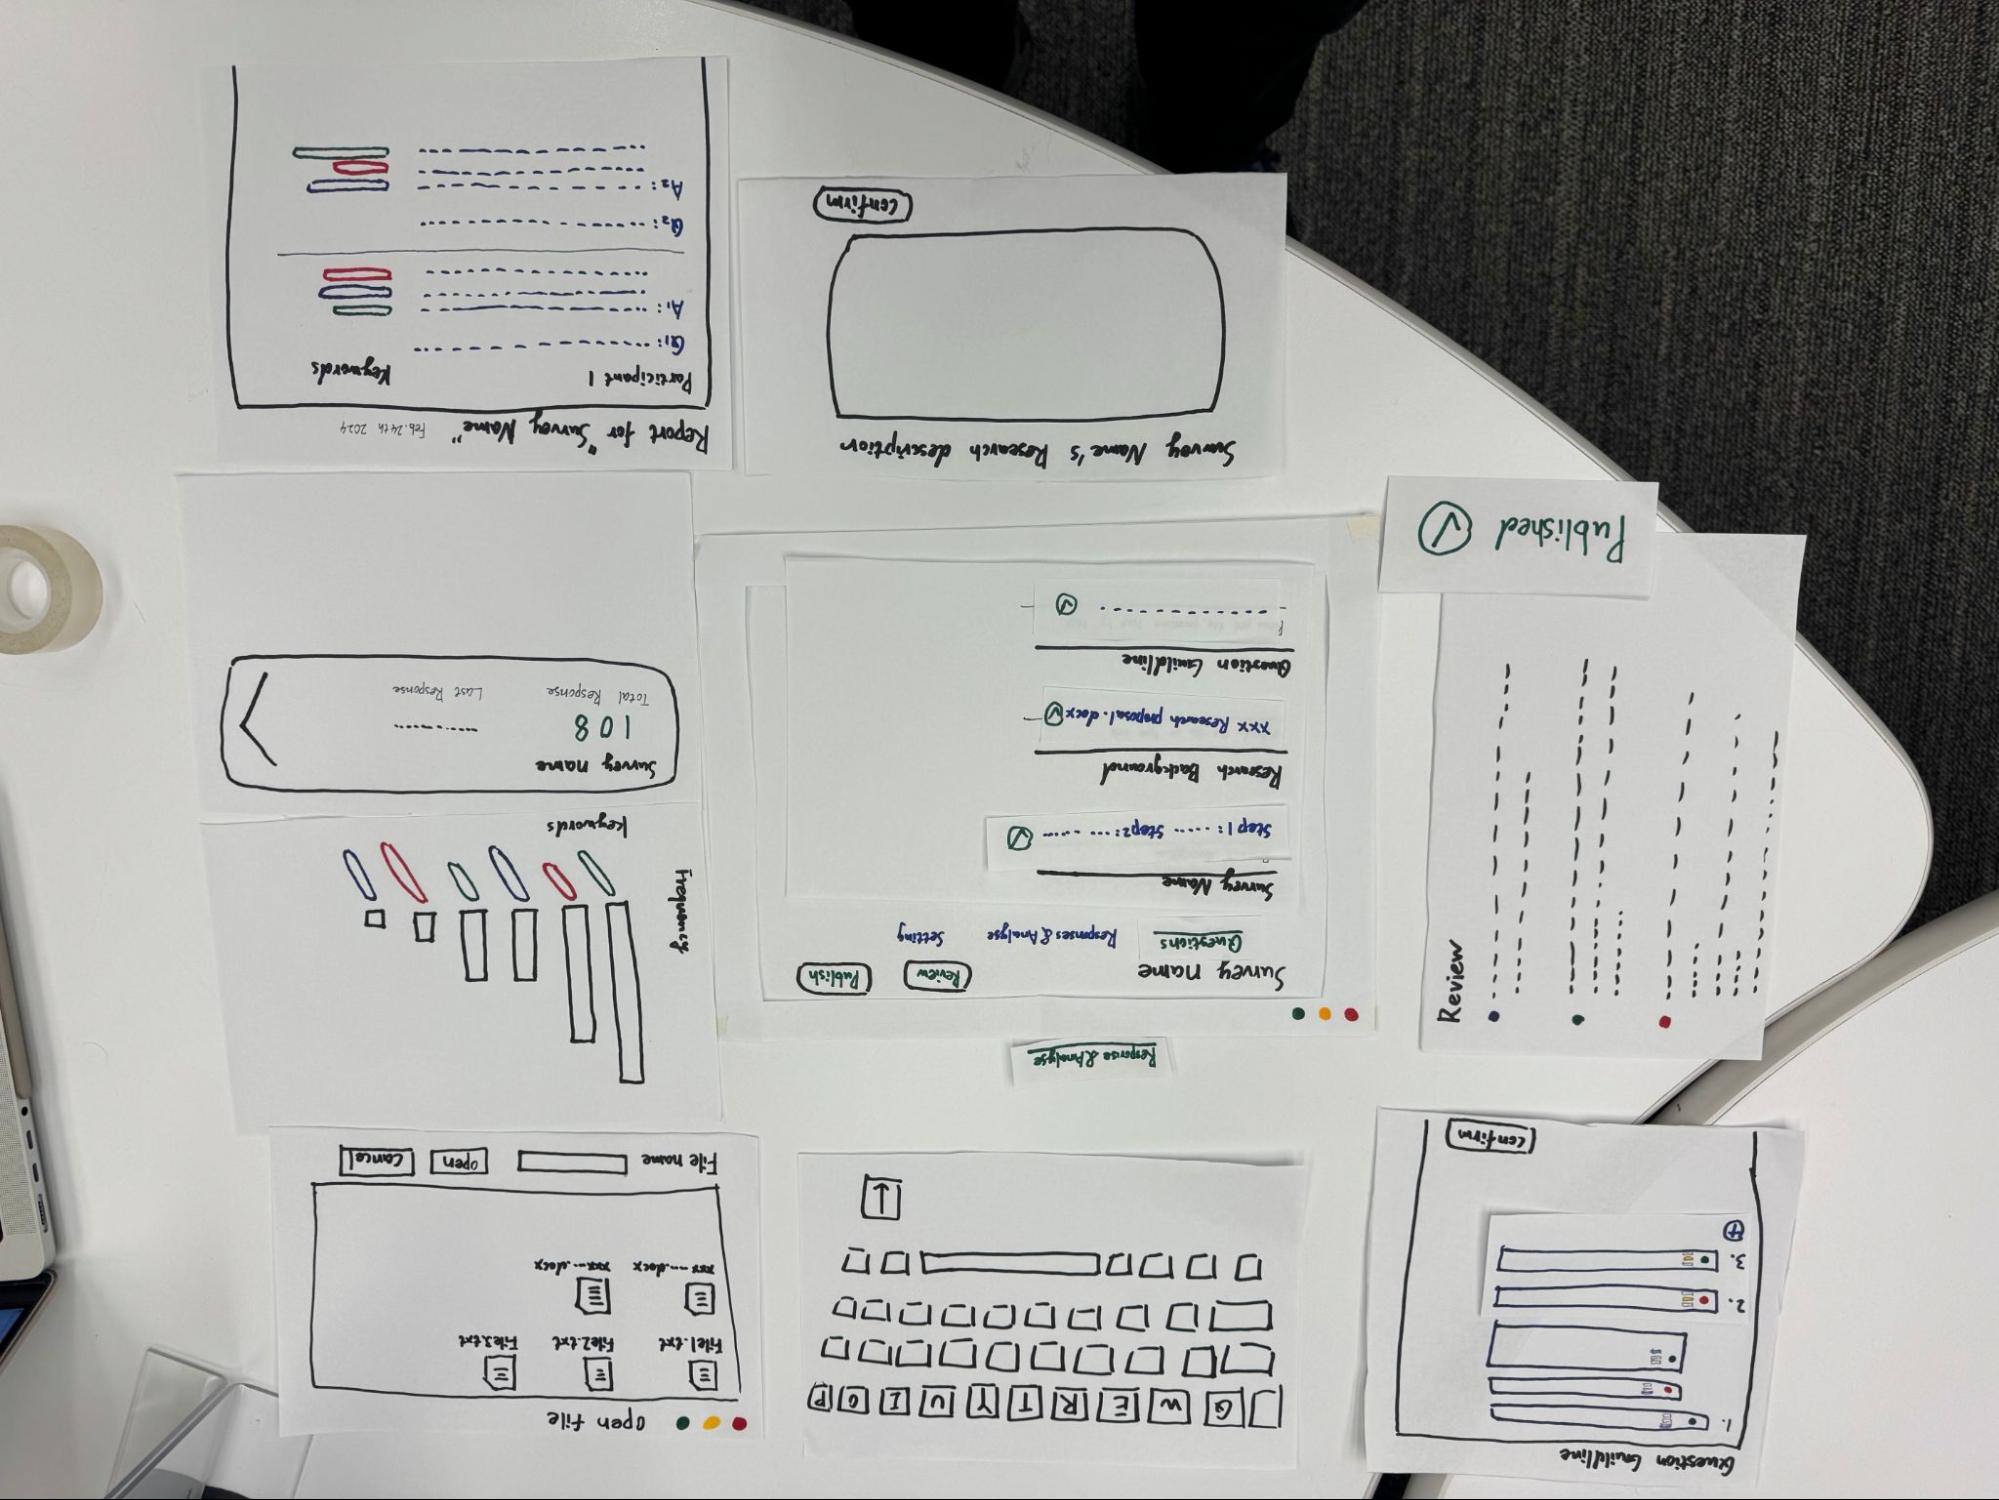 Question Guildline
1.
2.
3.
Confirm
Q W E R T Y U I O P
↓
open file
File1.txt File2.txt File3.txt
xxx----.docx xxx---.docx
File name open Cancel
Response & Analyse
Survey name Review Publish
Questions Responses & Analyse Setting
Survey Name
Step 1: ..... Step 2: ... ......
Research Background
xxx Research proposal.docx
Question Guildline
Frequency
Keywords
Survey name
108
Total Response Last Response
Review
Published
Survey Name's Research description
Confirm
Report for "Survey Name" Feb.24th 2024
Participant 1 Keywords
Q1:
A1:
Q2:
A2: